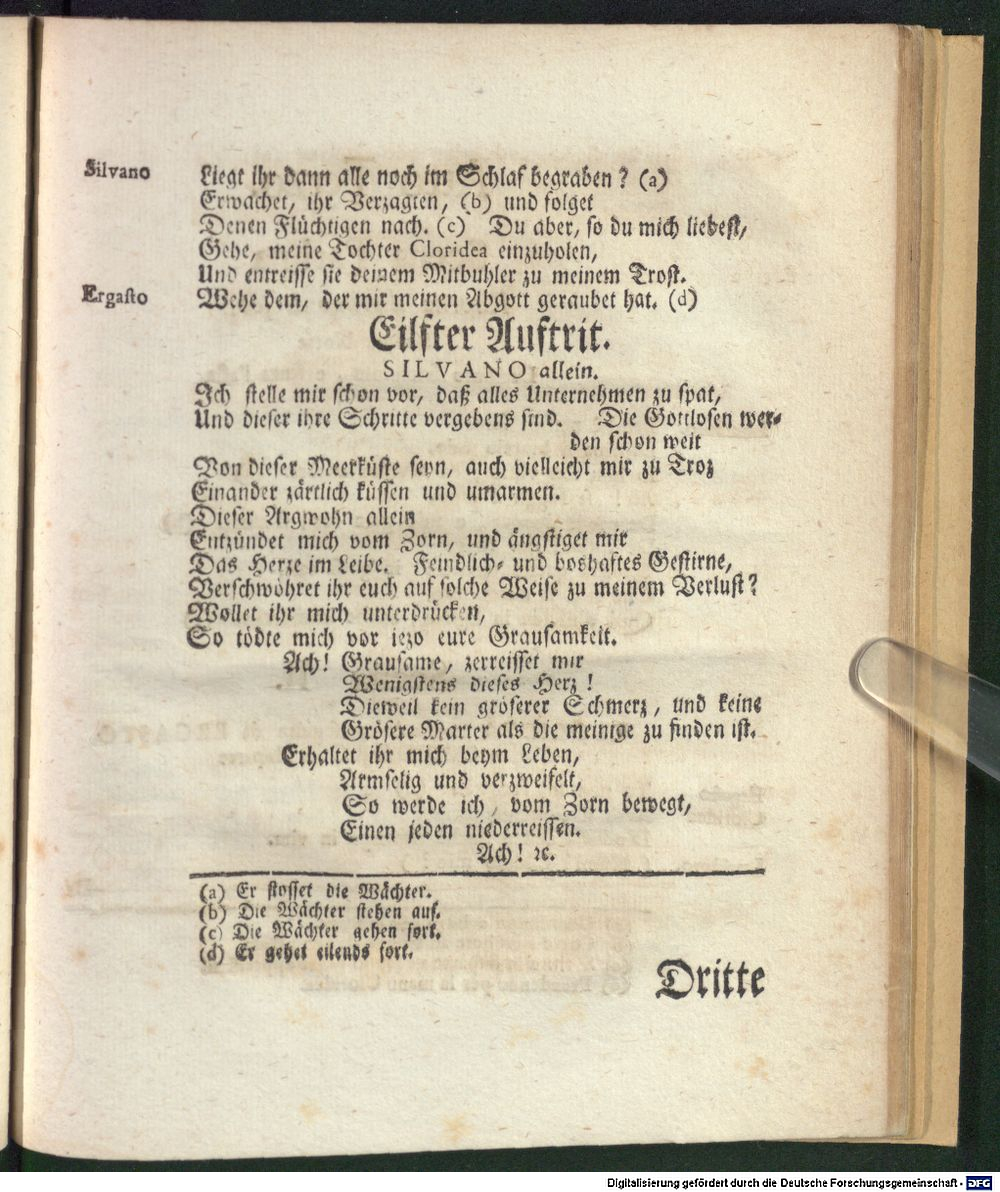 Silvano Liegt ihr dann alle noch im Schlaf begraben? (a)
Erwachet, ihr Verzagten, (b) und folget
Denen Flüchtigen nach. (c) Du aber, so du mich liebest,
Gehe, meine Tochter Cloridea einzuholen,
Und entreisse sie deinem Mitbuhler zu meinem Trost.
Ergasto Wehe dem, der mir meinen Abgott geraubet hat. (d)
Eilfter Auftrit.
SILVANO allein.
Ich stelle mir schon vor, daß alles Unternehmen zu spat,
Und dieser ihre Schritte vergebens sind. Die Gottlosen wer-
den schon weit
Von dieser Meerküste seyn, auch vielleicht mir zu Troz
Einander zärtlich küssen und umarmen.
Dieser Argwohn allein
Entzündet mich vom Zorn, und ängstiget mir
Das Herze im Leibe. Feindlich- und boshaftes Gestirne,
Verschwöhret ihr euch auf solche Weise zu meinem Verlust?
Wollet ihr mich unterdrücken,
So tödte mich vor jezo eure Grausamkeit.
Ach! Grausame, zerreisset mir
Wenigstens dieses Herz!
Dieweil kein gröserer Schmerz, und keine
Grösere Marter als die meinige zu finden ist.
Erhaltet ihr mich beym Leben,
Armselig und verzweifelt,
So werde ich, vom Zorn bewegt,
Einen jeden niederreissen.
Ach! ꝛc.
(a) Er stosset die Wächter.
(b) Die Wächter stehen auf.
(c) Die Wächter gehen fort.
(d) Er gehet eilends fort.
Dritte
Digitalisierung gefördert durch die Deutsche Forschungsgemeinschaft - DFG